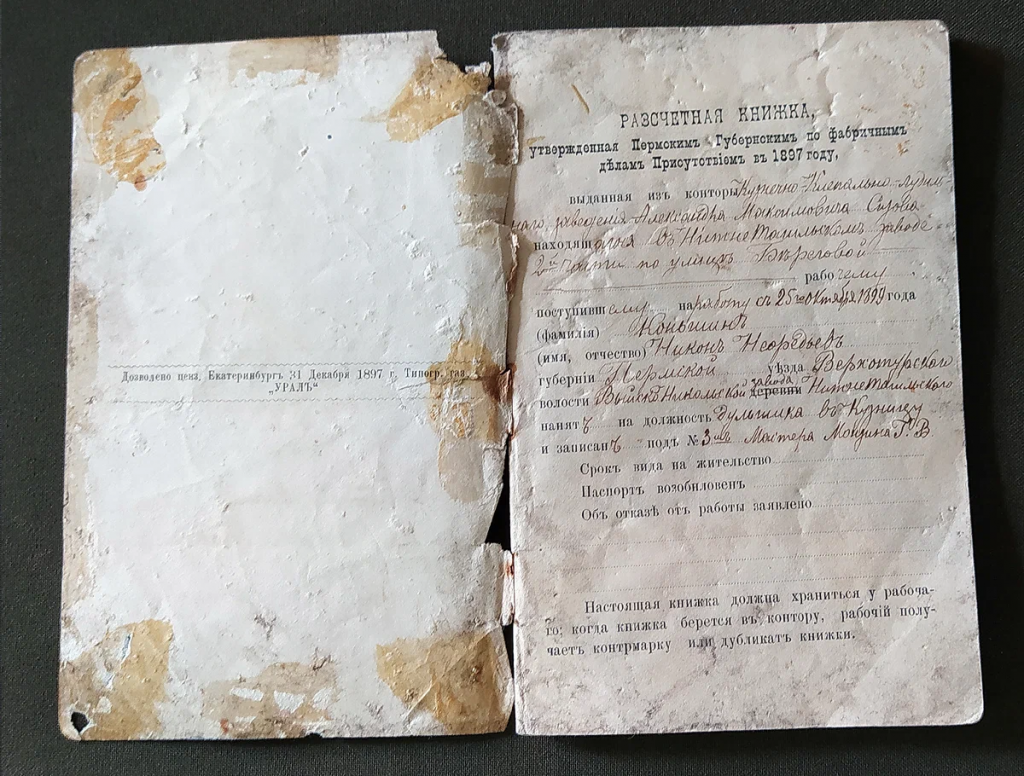 Дозволено ценз. Екатеринбургъ 31 Декабря 1897 г. Типогр. газ.
„УРАЛЪ“
РАЗСЧЕТНАЯ КНИЖКА,
утвержденная Пермскимъ Губернскимъ по фабричнымъ
дѣламъ Присутствіемъ въ 1897 году,
выданная изъ конторы Кузнечно-Клепально-Лудиль
наго заведенія Александра Максимовича
находящагося въ Нижне Тагильскомъ заводе
2й части по улицѣ Береговой
рабочему
поступившему на работу съ 25го октября 1899 года
(фамилія)
(имя, отчество) Никонъ Георгіевъ
губерніи Пермской уѣзда Верхотурскаго
волости Выйско Никольской деревни завода Нижне Тагильскаго
нанятъ на должность въ Кузницу
и записанъ подъ № 3 Мастера Г. В.
Срокъ вида на жительство
Паспортъ возобновленъ
Объ отказѣ отъ работы заявлено
Настоящая книжка должна храниться у рабоча-
го; когда книжка берется въ контору, рабочій полу-
чаетъ контрмарку или дубликатъ книжки.